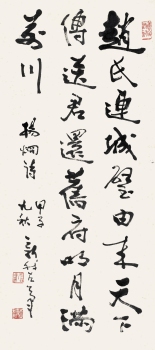 趙氏連城璧由來天下
傳送君還舊府明月滿
前川
楊炯詩
甲子
九秋
新我左筆